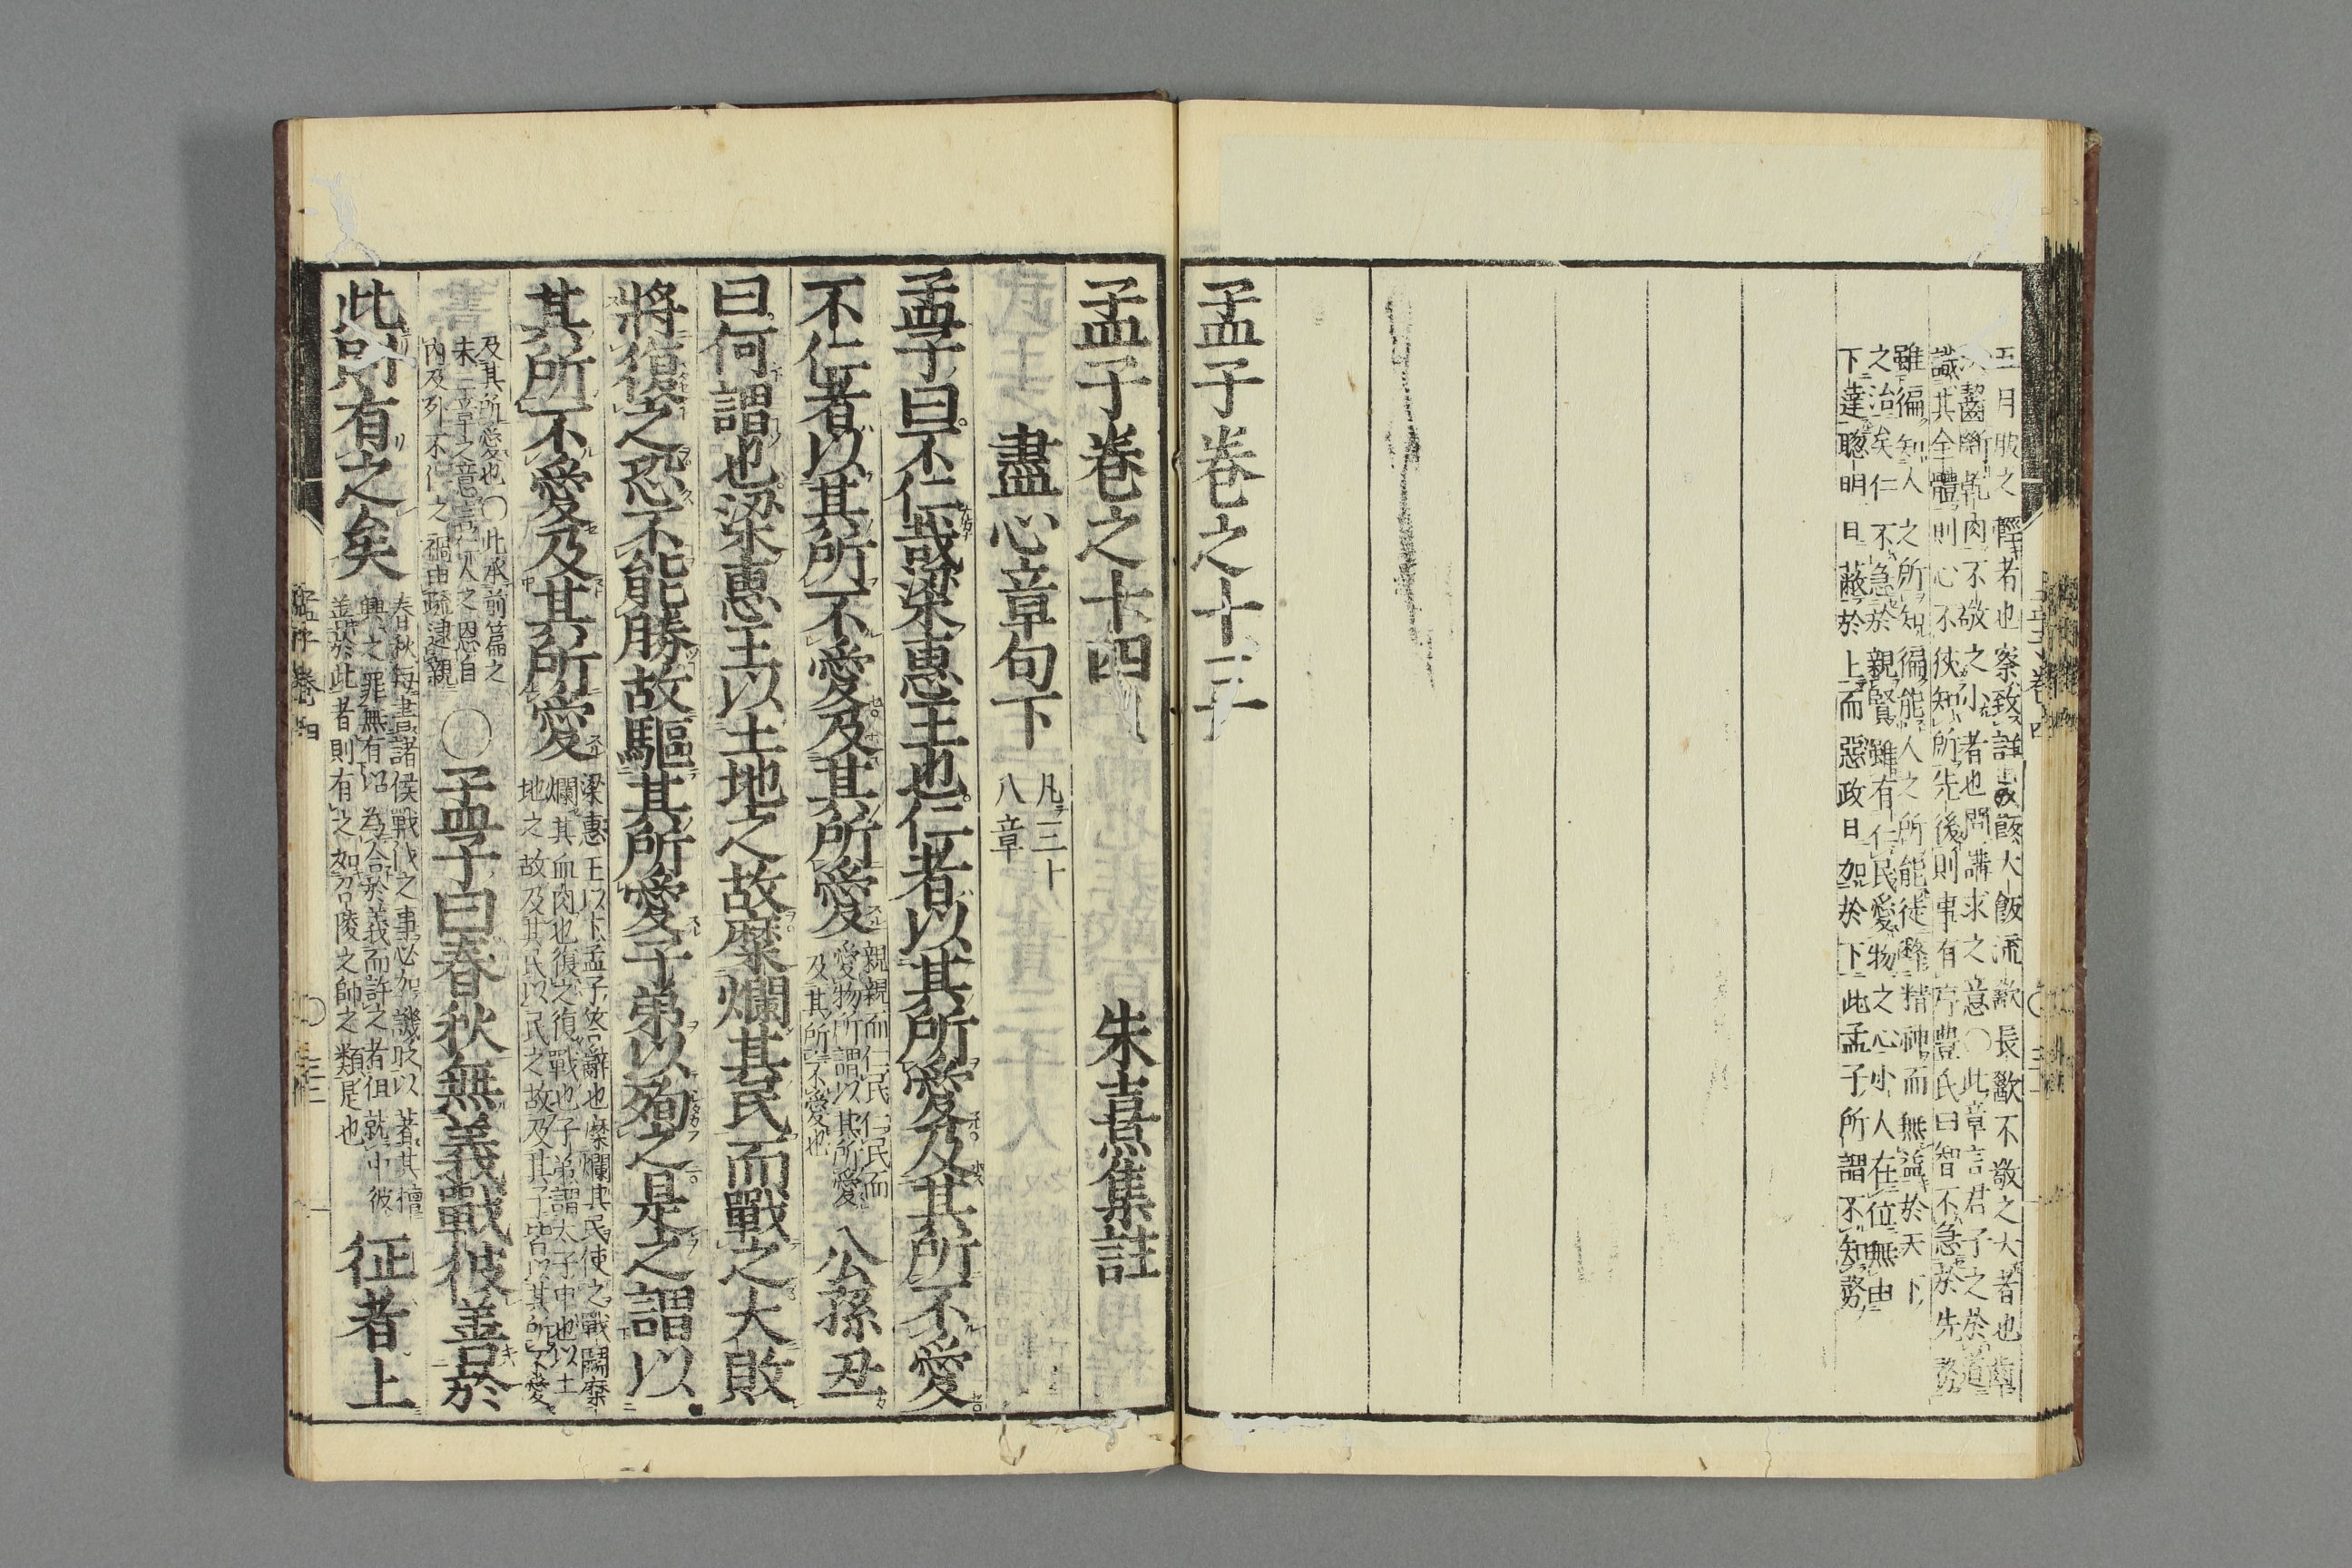 五月服之輕者也察致詳也放飯大飯流歠長歠不敬之大者也齒
決齧斷乾肉不敬之小者也問講求之意〇此章言君子之於道
識其全體則心不狹知所先後則事有序豐氏曰智不急於先務
雖徧知人之所知徧能人之所能徒弊精神而無益於天下
之治矣仁不急於親賢雖有仁民愛物之心小人在位無由
下達聰明日蔽於上而惡政日加於下此孟子所謂不知務
孟子卷之十三
孟子卷之十四
朱熹集註
盡心章句下
凡三十
八章
孟子曰不仁哉梁惠王也仁者以其所愛及其所不愛
不仁者以其所不愛及其所愛
親親而仁民仁民而
愛物所謂以其所愛
及其所不愛也
公孫丑
曰何謂也梁惠王以土地之故糜爛其民而戰之大敗
將復之恐不能勝故驅其所愛子弟以殉之是之謂以
其所不愛及其所愛
梁惠王以下孟子答辭也糜爛其民使之戰鬪糜
爛其血肉也復之復戰也子弟謂太子申也以土
地之故及其民以民之故及其子皆以其所不愛
及其所愛也〇此承前篇之
末三章之意言仁人之恩自
內及外不仁之禍由疏逮親
〇孟子曰春秋無義戰彼善於
此則有之矣
春秋每書諸侯戰伐之事必加譏貶以著其擅
興之罪無有以為合於義而許之者但就中彼
善於此者則有之如召陵之師之類是也
征者上